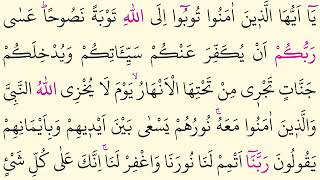 يَٓا اَيُّهَا الَّذٖينَ اٰمَنُوا تُوبُٓوا اِلَى اللّٰهِ تَوْبَةً نَصُوحاًؕ عَسٰى
رَبُّكُمْ اَنْ يُكَفِّرَ عَنْكُمْ سَيِّـَٔاتِكُمْ وَيُدْخِلَكُمْ
جَنَّاتٍ تَجْرٖى مِنْ تَحْتِهَا الْاَنْهَارُۙ يَوْمَ لَا يُخْزِى اللّٰهُ النَّبِىَّ
وَالَّذٖينَ اٰمَنُوا مَعَهُۚ نُورُهُمْ يَسْعٰى بَيْنَ اَيْدٖيهِمْ وَبِاَيْمَانِهِمْ
يَقُولُونَ رَبَّنَٓا اَتْمِمْ لَنَا نُورَنَا وَاغْفِرْ لَنَاۚ اِنَّكَ عَلٰى كُلِّ شَیْءٍ